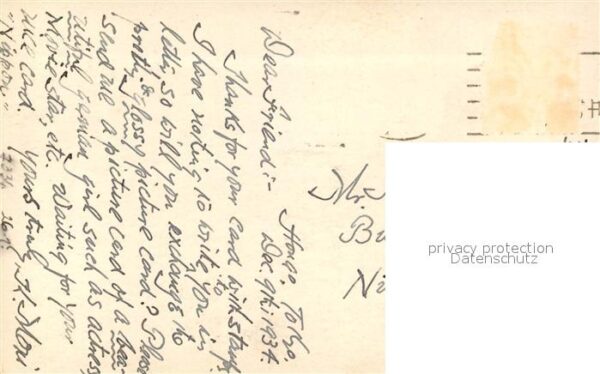 Hongo Tokio.
Dec. 9th. 1934.
Dear Friend:-
Thanks for your card with stamp
I have nothing to write you in
letter so will you exchange to
pretty & glossy picture card? Please
send me a picture card of a beau-
tiful german girl such as actress,
Movie star, etc. Waiting for your
nice card. Yours truly, K. Mori
"Nippon"
Mr.
Bu
Nü
privacy protection
Datenschutz